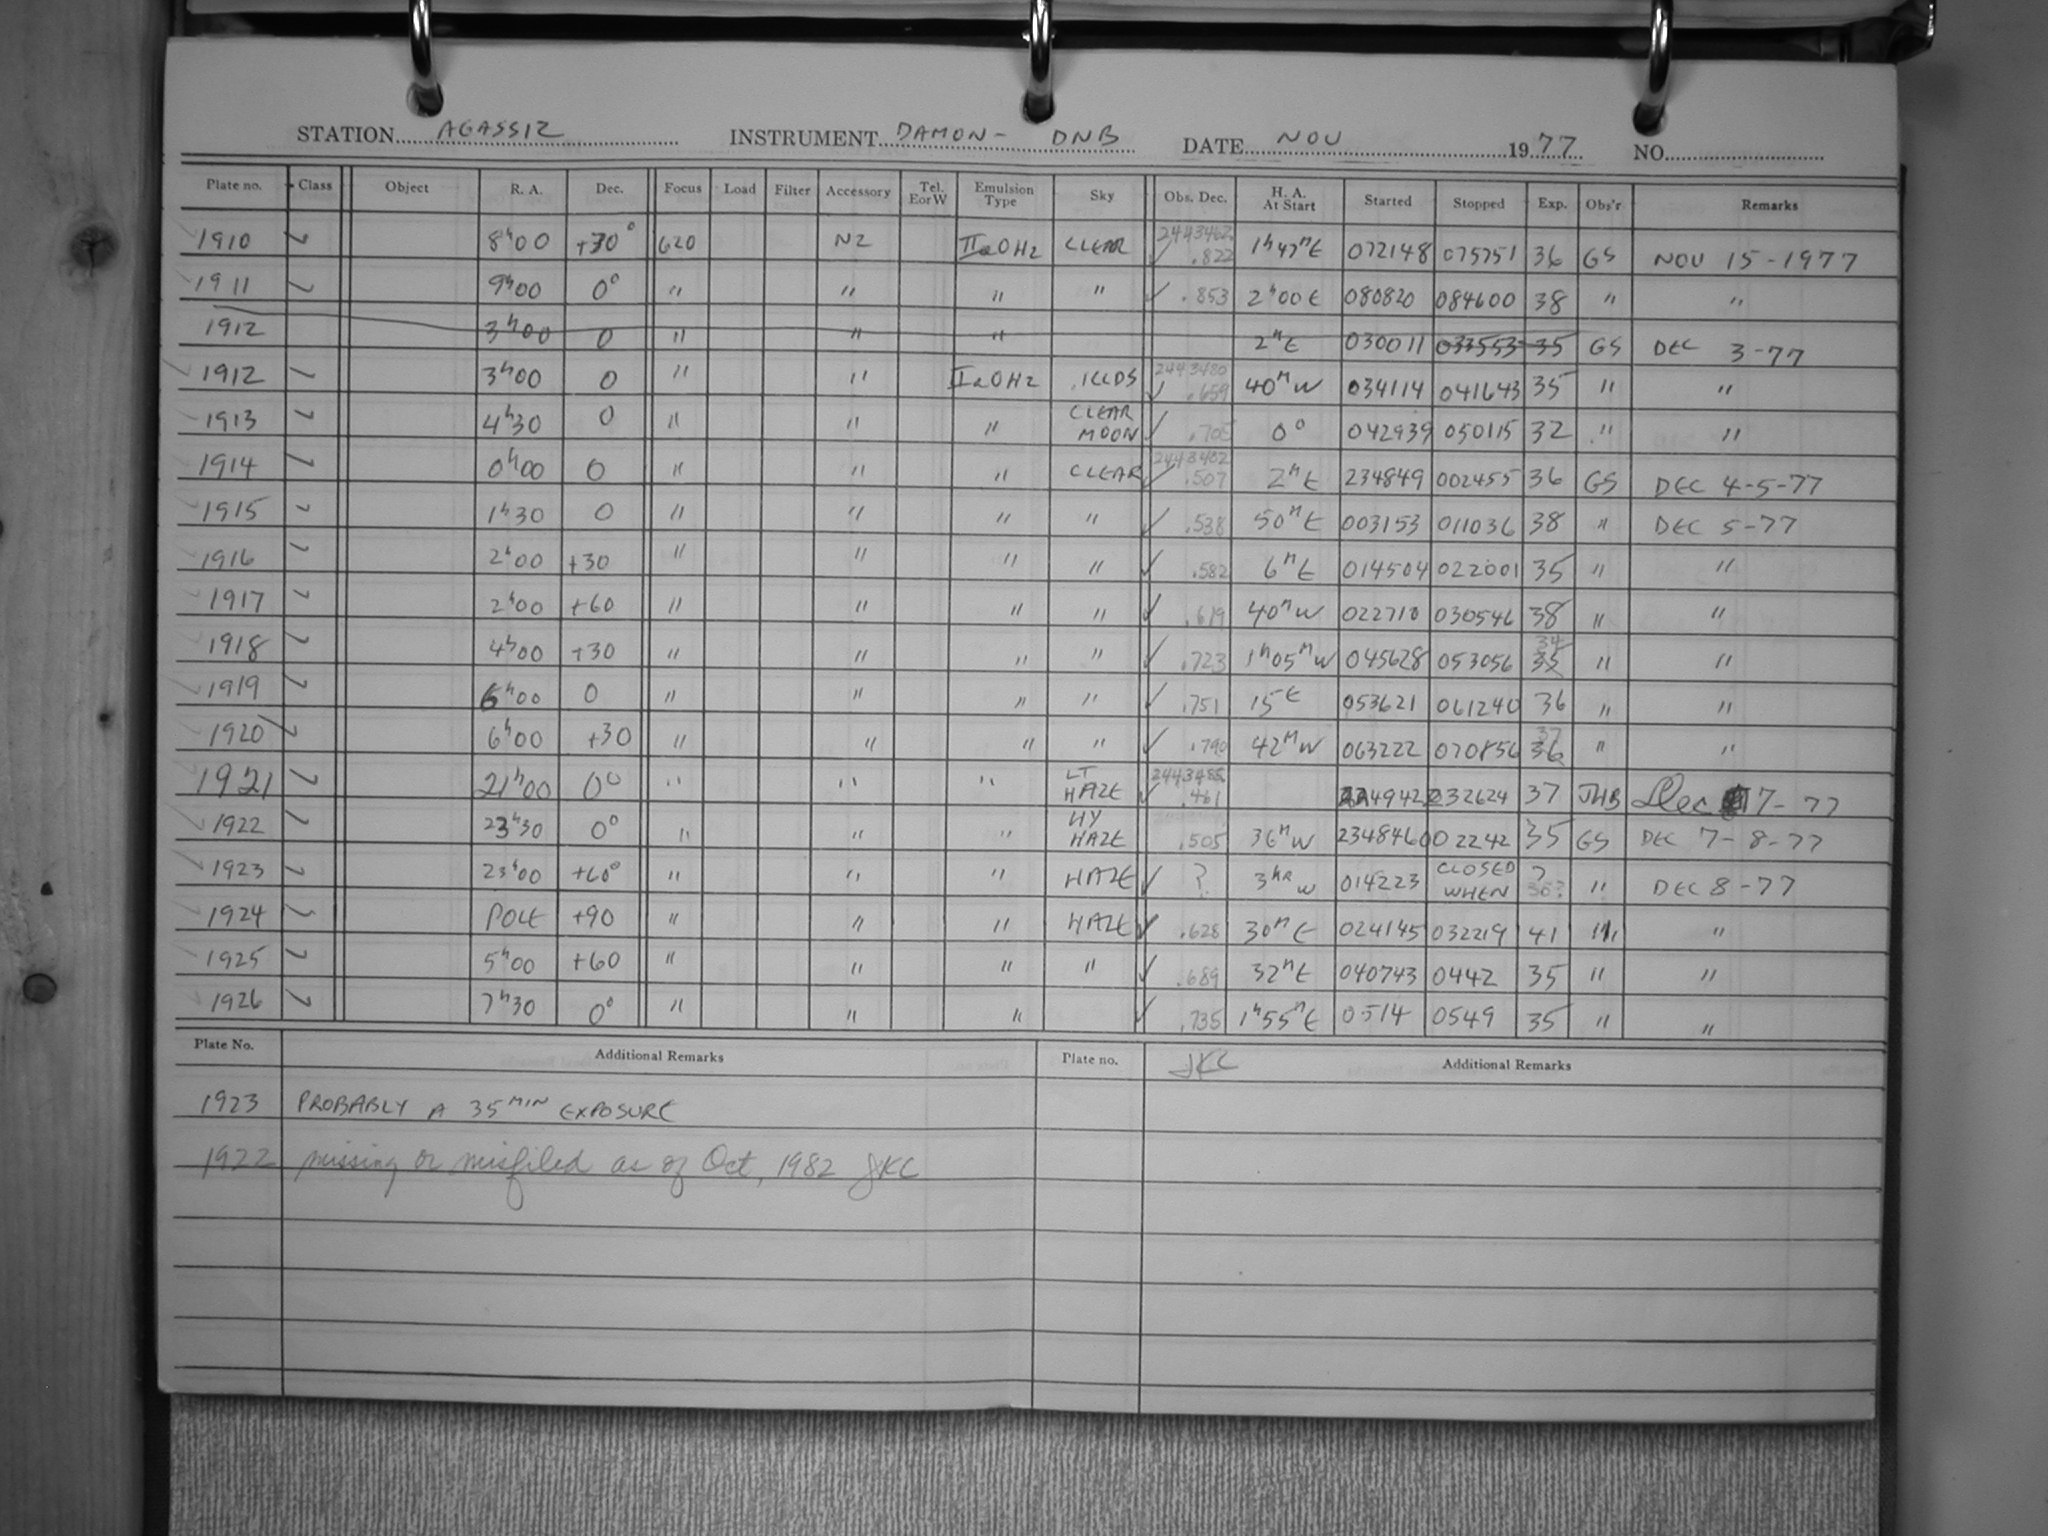 STATION AGASSIZ INSTRUMENT DAMON - DNB DATE NOV 1977 NO.
Plate no. Class Object R. A. Dec. Focus Load Filter Accessory Tel. E or W Emulsion Type Sky Obs. Dec. H. A. At Start Started Stopped Exp. Obs'r Remarks
1910 ✓ 8ʰ00 +30° 620 N2 IIaOH2 CLEAR 2443462 ✓ .822 1ʰ47ᵐE 072148 075751 36 GS NOV 15-1977
1911 ✓ 9ʰ00 0° " " " " ✓ .853 2ʰ00E 080820 084600 38 " "
1912 3ʰ00 0 " " " 2ʰE 030011 033553 35 GS DEC 3-77
1912 ✓ 3ʰ00 0 " " IIaOH2 2443480 ✓ .659 40ᵐW 034114 041643 35 " "
1913 ✓ 4ʰ30 0 " " " CLEAR MOON ✓ .705 0° 042939 050115 32 " "
1914 ✓ 0ʰ00 0 " " " CLEAR ✓ .507 2ʰE 234849 002455 36 GS DEC 4-5-77
1915 ✓ 1ʰ30 0 " " " " ✓ .538 50ᵐE 003153 011036 38 " DEC 5-77
1916 ✓ 2ʰ00 +30 " " " " ✓ .582 6ᵐE 014504 022001 35 " "
1917 ✓ 2ʰ00 +60 " " " " ✓ .619 40ᵐW 022710 030546 38 " "
1918 ✓ 4ʰ00 +30 " " " " ✓ .723 1ʰ05ᵐW 045628 053056 34 35 " "
1919 ✓ 6ʰ00 0 " " " " ✓ .751 15E 053621 061240 36 " "
1920 ✓ 6ʰ00 +30 " " " " ✓ .790 42ᵐW 063222 070856 37 36 " "
1921 ✓ 21ʰ00 0° " " " LT HAZE 2443485 ✓ .461 224942 232624 37 JHB Dec 7-77
1922 ✓ 23ʰ30 0° " " " HY HAZE .505 36ᵐW 234846 002242 35 GS DEC 7-8-77
1923 ✓ 23ʰ00 +60° " " " HAZE ✓ ? 3ʰʳW 014223 CLOSED WHEN ? 35? " DEC 8-77
1924 ✓ POLE +90 " " " HAZE ✓ .628 30ᵐE 024145 032219 41 " "
1925 ✓ 5ʰ00 +60 " " " " ✓ .689 32ᵐE 040743 0442 35 " "
1926 ✓ 7ʰ30 0° " " " ✓ .735 1ʰ55ᵐE 0514 0549 35 " "
Plate No. Additional Remarks Plate no. JKC Additional Remarks
1923 PROBABLY A 35 MIN EXPOSURE
1922 missing or misfiled as of Oct, 1982 JKC